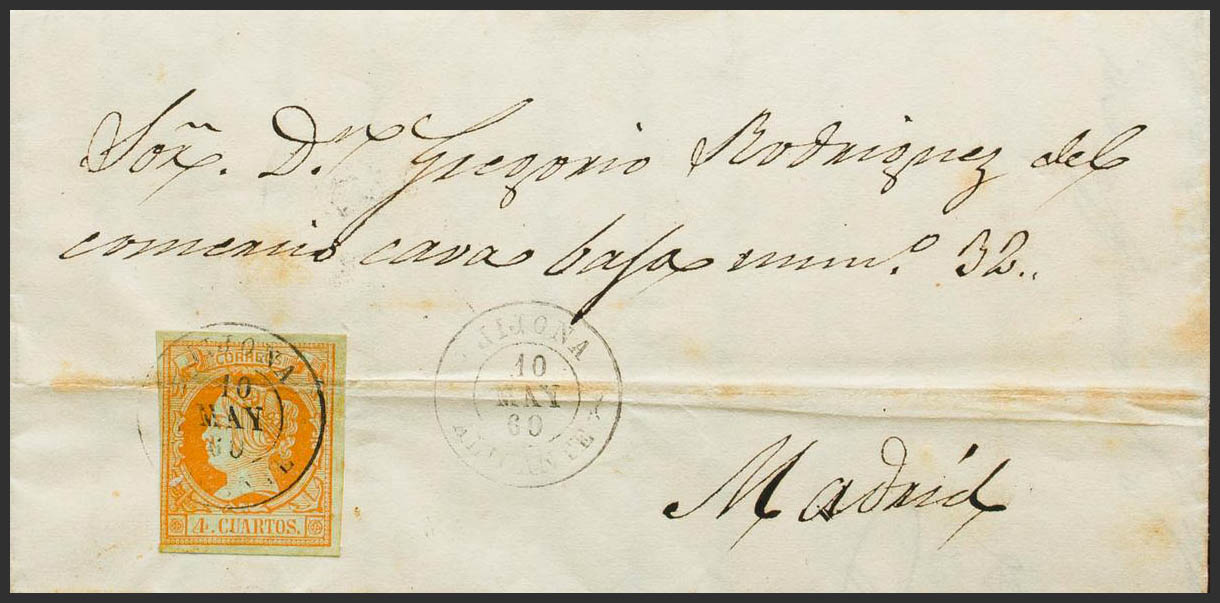 Sor. Dn. Gregorio Rodriguez del
comercio cava baja num.º 32..
JIJONA
10
MAY
60
ALICANTE
CORREOS
JIJONA
10
MAY
60
4 CUARTOS.
Madrid